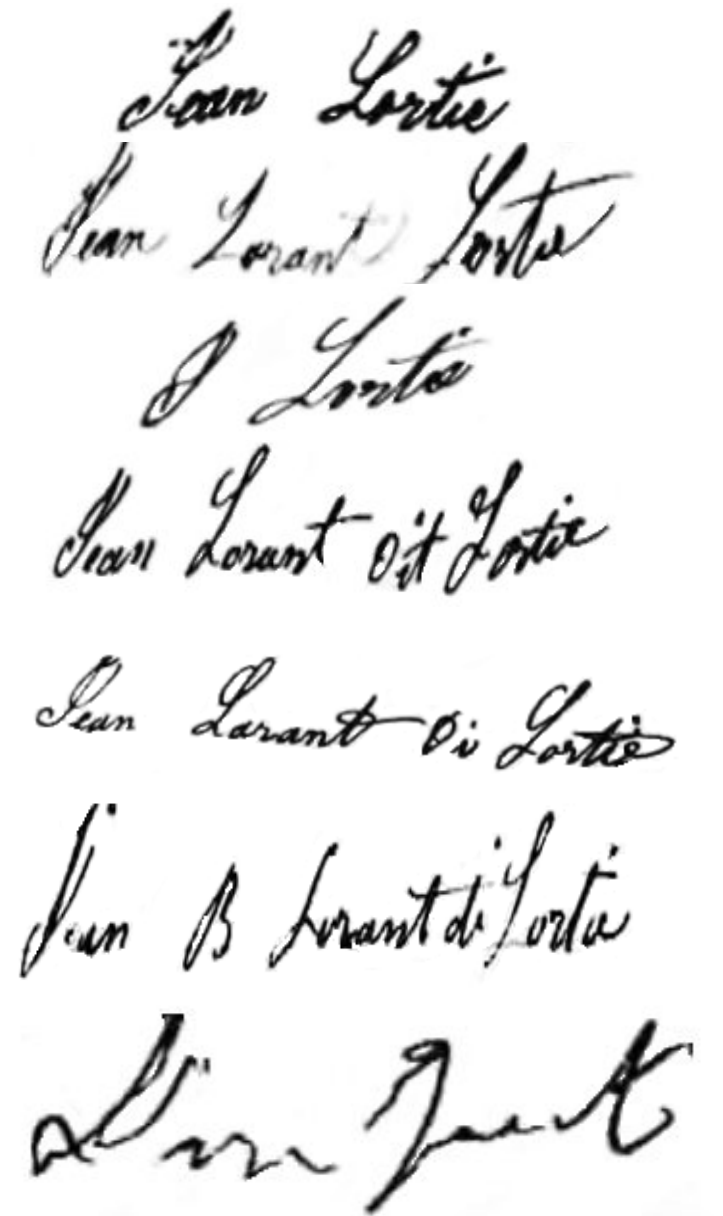 Jean Lortie
Jean Lorant Lortie
J Lortie
Jean Lorant Dit Lortie
Jean Larant Di Lortie
Jean B Lorant di Lortie